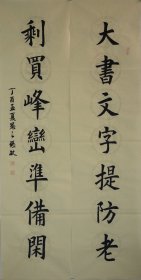 大書文字提防老
剩買峰巒準備閑
丁酉孟夏